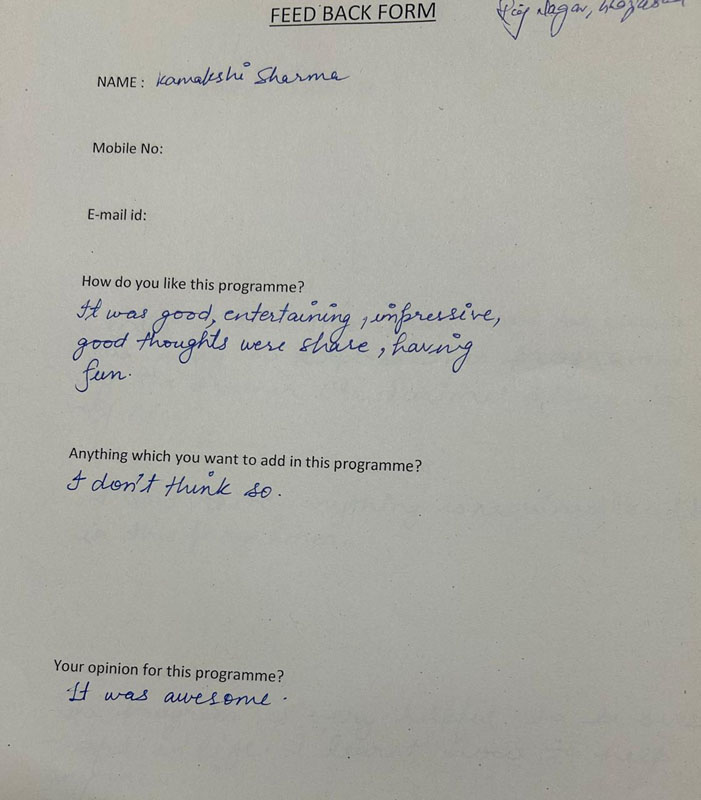 FEED BACK FORM
Raj Nagar,
NAME : Kamakshi Sharma
Mobile No:
E-mail id:
How do you like this programme?
It was good, entertaining, impressive,
good thoughts were share, having
fun.
Anything which you want to add in this programme?
I don't think so.
Your opinion for this programme?
It was awesome.